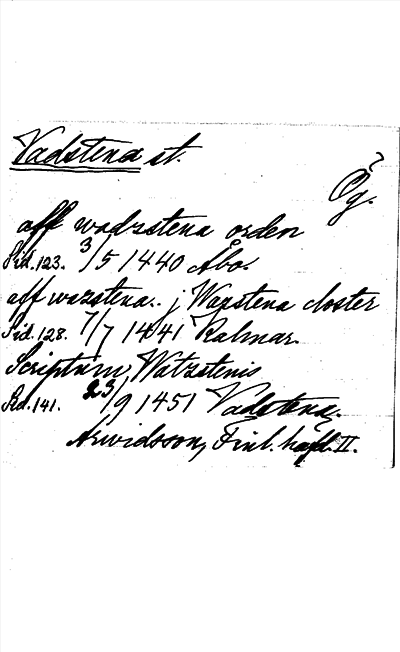 Vadstena st.
Ög.
aff wadzstena orden
Sid. 123. 3/5 1440 Åbo.
aff wazstena. j Wazstena closter
Sid. 128. 7/7 1441 Kalmar.
Scriptum Watzstenis
Sid. 141. 23/9 1451 Vadstena.
Arwidsson, Finl. häfd. II.